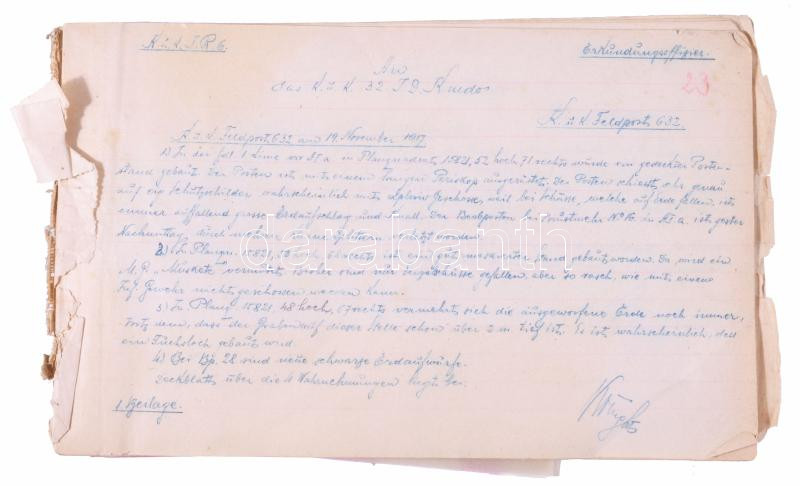 K. u. k. I. R. 6.
Erkundungsoffizier.
23
An
das k. u. k. 32. I. D. Kmdo
K. u. k. Feldpost 632.
K. u. k. Feldpost 632 am 19. November 1917
1) In der fdl. 1 Linie vor II a in Planquadrat 15821, 52 hoch 71 rechts wurde ein gedeckter Posten-
stand gebaut. Der Posten ist mit einem langen Periskop ausgerüstet. Der Posten schiesst sehr genau
auf die Schutzschilder wahrscheinlich mit explosiv Geschosse, weil bei Schüsse, welche auf Erde fallen, ist
immer auffallend grosse Erdaufschlag und Knall. Der Beobposten bei Brustwehr No 16. in II a. ist gester
Nachmittag durch mehrere verletzt worden.
2) In Planqu. 15821, hoch rechts ist ein gut maskierter Stand gebaut worden. Da wird ein
M. G. Muskete vermutet. Bisher sind nur gefallen, aber so rasch, wie mit einem
Inf. Gewehr nicht geschossen werden kann.
3) In Planq. 15821, 48 hoch, 67 rechts vermehrt sich die ausgeworfene Erde noch immer,
trotzdem, dass der Graben auf dieser Stelle schon über 2 m tief ist. Es ist wahrscheinlich, dass
ein Fuchsloch gebaut wird.
4) Bei Bp. 28 sind neue schwarze Erdaufwürfe.
Deckblatt über die 4 Wahrnehmungen liegt bei.
1 Beilage.
darabanth